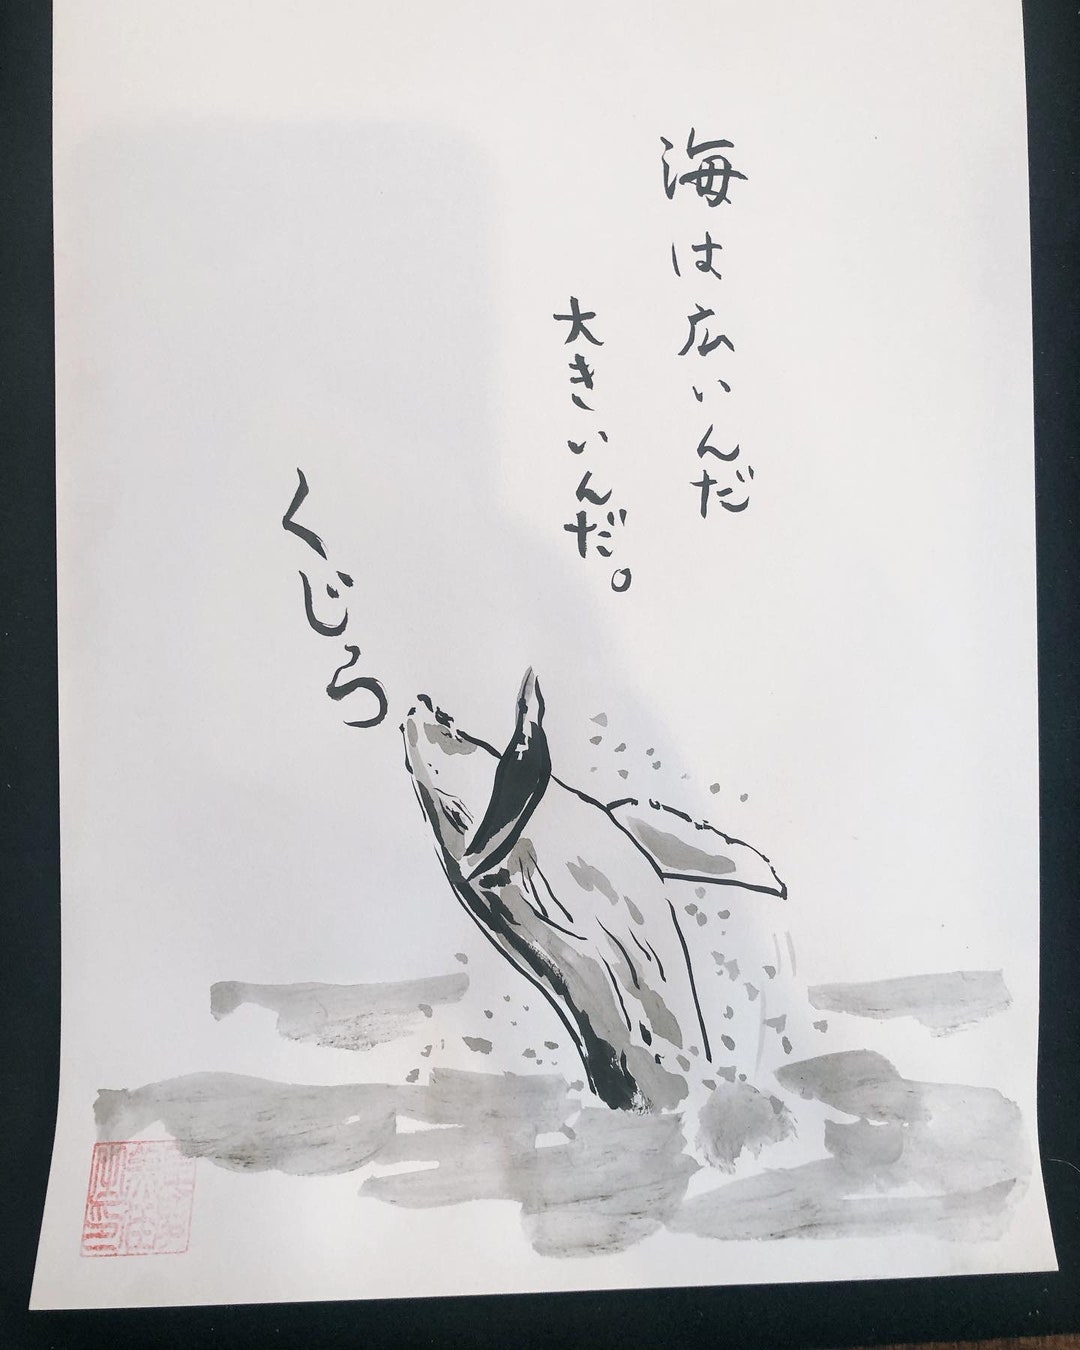 海は広いんだ
大きいんだ。
くじら